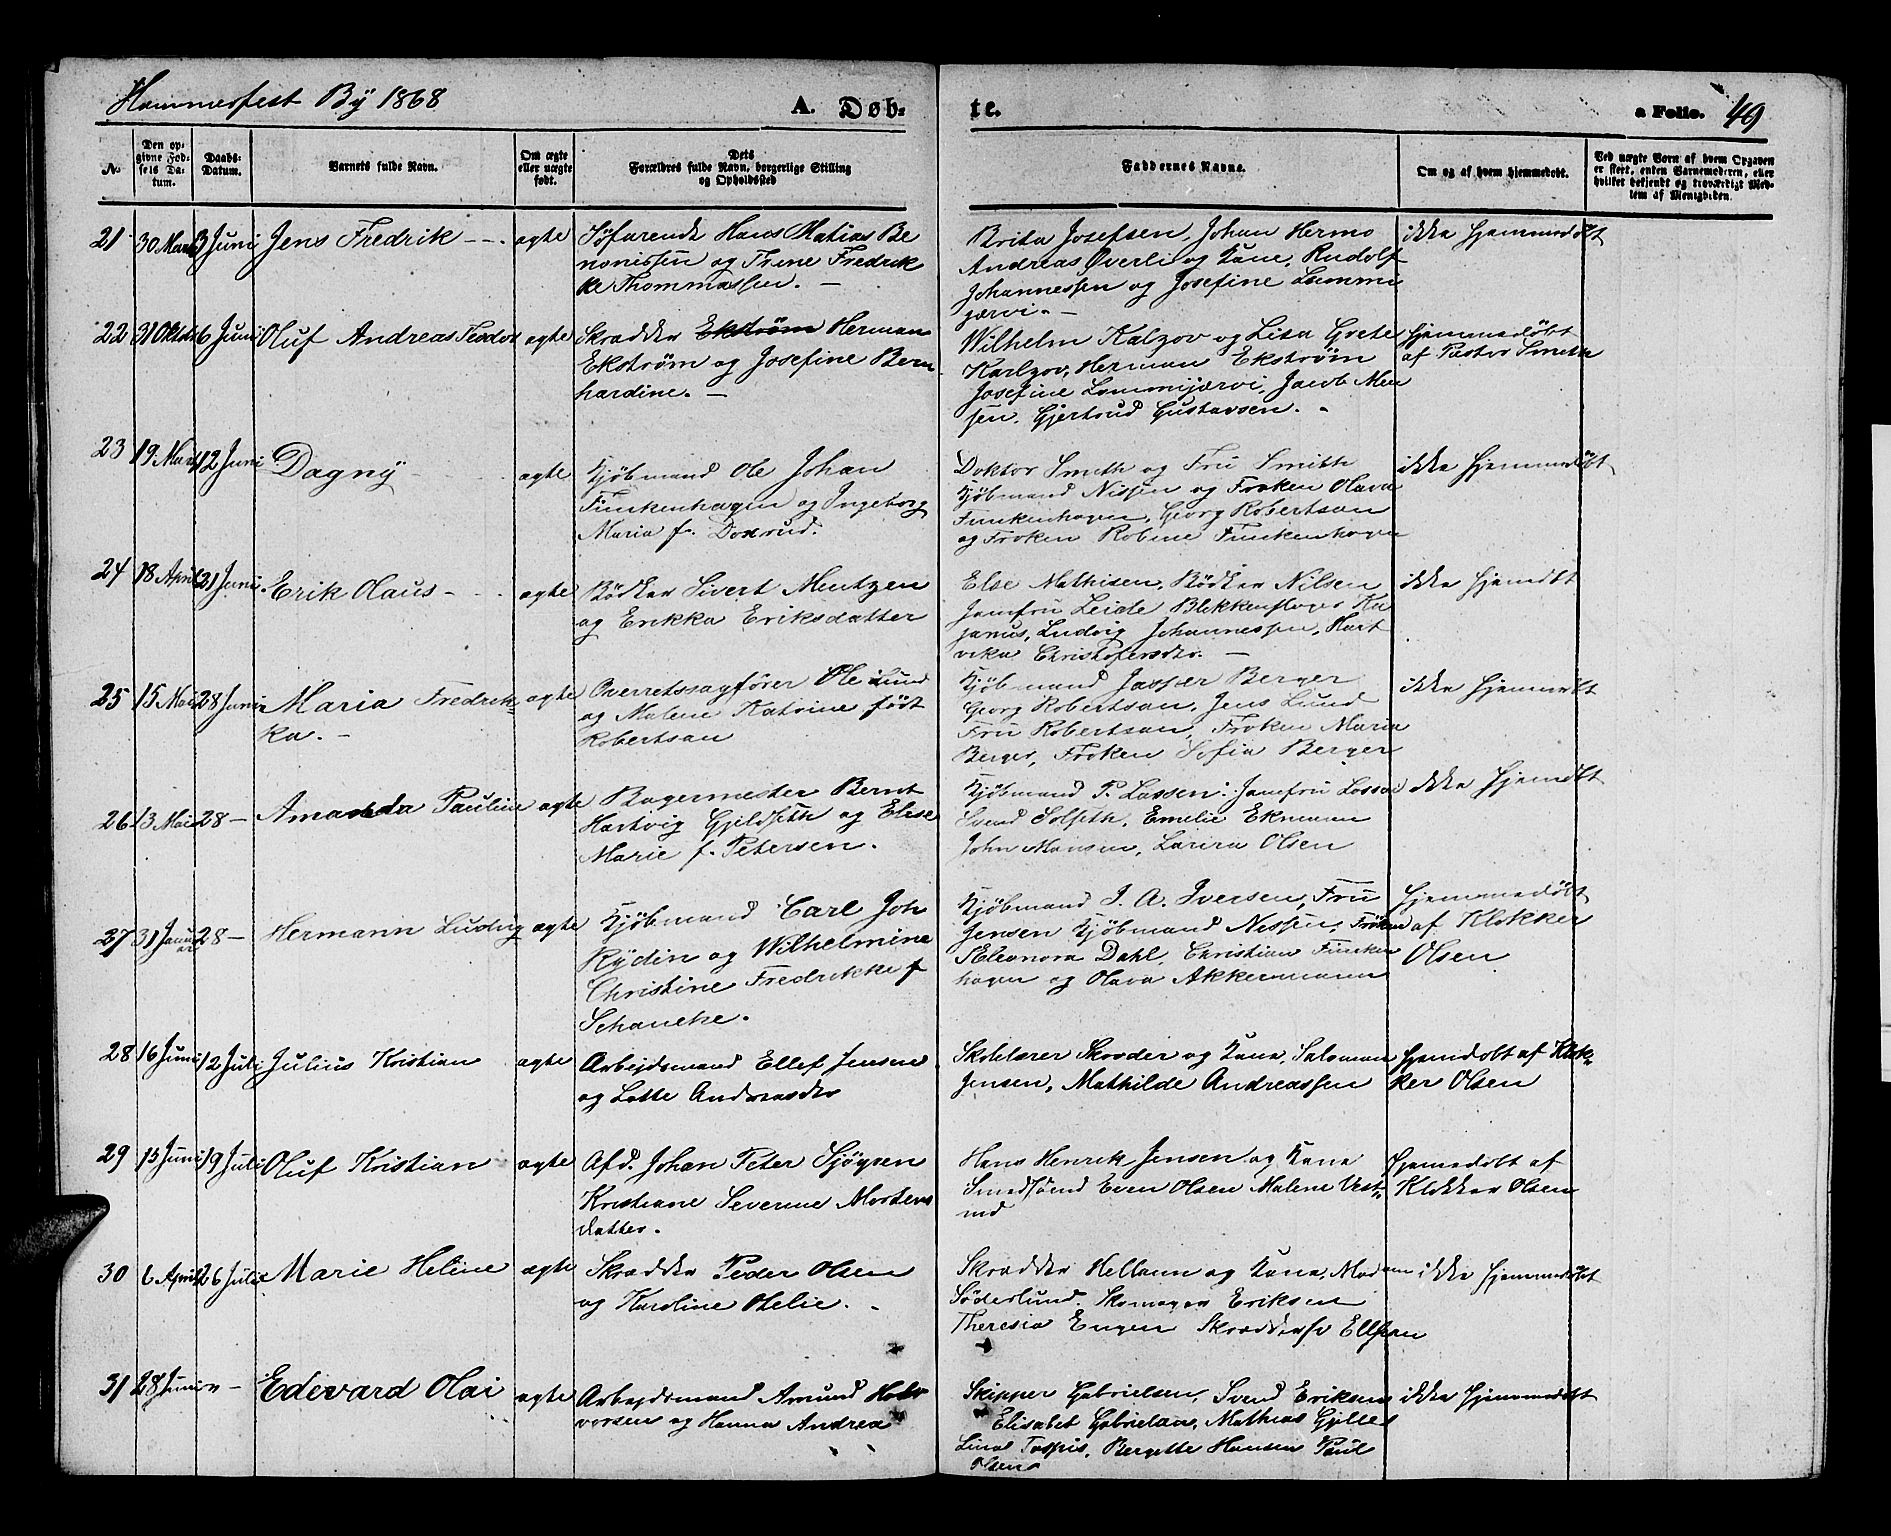 Hammerfest By 1868 A. Døb- te. a Folio. 49
No.
Den op-
givne Fød-
sels Da-
tum.
Daabs-
Datum.
Barnets fulde Navn.
Om ægte
eller uægte
født.
Dets
Forældres fulde Navn, borgerlige Stilling
og Opholdssted
Faddernes Navne.
Om og af hvem hjemmedøbt.
Ved uægte Børn af hvem Opgaven
er skeet, enten Barnemoderen, eller
hvilket bekjendt og troværdigt Med-
lem af Menigheden.
21 30 Marts 3 Juni Jens Fredrik - - . ægte
Søfarende Hans Matias Be
nonissen og Trine Fredrik
ke Thommassen. -
Brita Josefsen, Johan Hermo
Andreas Øverli og Kone, Rudolf
Johannessen og Josefine Lammi
jærvi. -
ikke hjemmedøbt
22 31 Oktbr 6 Juni Oluf Andreas Teodor ægte
Skrædder Ekstrøm Herman
Ekstrøm og Josefine Bern
hardine. -
Wilhelm Kalzov og Lisa Grete
Karlzov, Herman Ekstrøm
Josefine Lammijærvi, Jacob Men
sen, Gjertrud Gustavsen.
Hjemmedøbt
af Pastor Smith
23 19 Marts 12 Juni Dagny ægte
Kjøbmand Ole Johan
Finkenhagen og Ingeborg
Maria f. Doxrud.
Doktor Smith og Fru Smith
Kjøbmand Nissen og Frøken Olava
Finkenhagen, Georg Robertson
og Frøken Robine Finkenhagen
ikke hjemmedøbt
24 18 April 21 Juni Erik Olaus - ægte
Bödker Sivert Mentzen
og Erikka Eriksdatter
Else Mathisen, Bödker Nilsen
Jomfru Leide Blekkenslager
Ludvig Johannessen, Hart
vika Christofersdtr. -
ikke hjemdbt
25 15 Mai 28 Juni Maria Fredrik- ægte
ka. -
Overretssagfører Ole Lund
og Malene Katrine født
Robertson
Kjøbmand Jasper Berger
Georg Robertson, Jens Lund
Fru Robertson, Frøken Maria
Berger, Frøken Sofia Berger
ikke hjemmdbt
26 13 Mai 28 - Amanda Pauline ægte
Bagermester Bernt
Hartvig Gjeldseth og Elise
Marie f. Petersen.
Kjøbmand P. Lassen. Jomfru Lassen
Svend Solseth, Emelie Ekmann
John Monsen, Larina Olsen
ikke hjemdbt
27 31 Janu 28 - Hermann Ludvig ægte
ar
Kjøbmand Carl Joh
Rydin og Wilhelmine
Christine Fredrikke f
Schancke.
Kjøbmand I. A. Iversen, Fru
Jensen Kjøbmand Nissen, Frøken
Eleonora Dahl, Christian Finken
hagen og Olava Akkermann
Hjemmedøbt
af Klokker
Olsen
28 16 Juni 12 Juli Julius Kristian ægte
Arbeidsmand Ellef Jensen
og Lotte Andreasdtr
Skolelærer Skovder og Kone, Salomon
Jensen, Mathilde Andreassen
hjemdobt af Klok-
ker Olsen
29 15 Juni 19 Juli Oluf Kristian ægte
Afd. Johan Peter Sjøgren
Kristiane Severine Mortens
datter.
Hans Henrik Jensen og Kone
Smedsvend Even Olsen Malene Vest-
hjemmedøbt af
Klokker Olsen
30 6 April 26 Juli Marie Heline ægte
Skrædder Peder Olsen
og Karoline Otelie.
Skrædder Hellann og Kone, Mad
Söderlund. Skomager Eriksen
Theresia Engen Ellssen
ikke hjemmedøbt
31 28 Juni " - Edevard Olai ægte
Arbeidsmand Amund Hal
vorsen og Hanna Andrea
Skipper Gabrielsen, Svend Eriksen
Elisabet Gabrielsn, Mathias Gjilles
Bergette Hansen Paul
Olsen
ikke hjemmedøbt